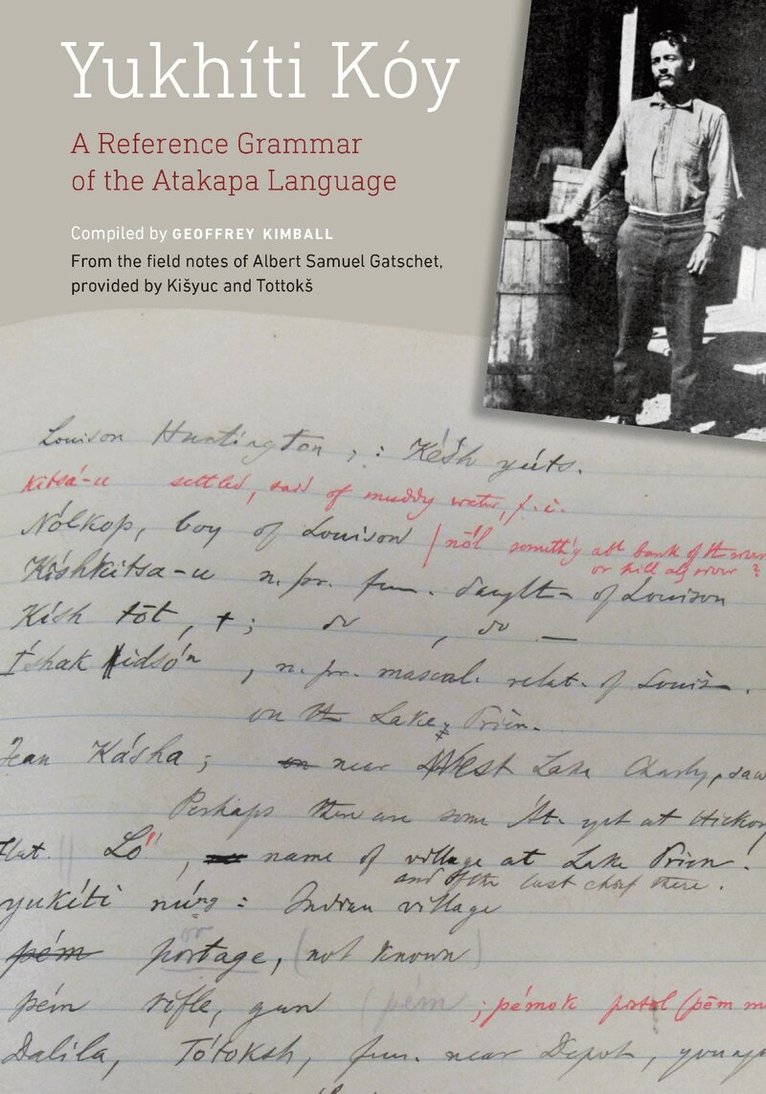 Yukhíti Kóy
A Reference Grammar
of the Atakapa Language
Compiled by GEOFFREY KIMBALL
From the field notes of Albert Samuel Gatschet,
provided by Kišyuc and Tottokš
Louison Huntington, : Késh yúts.
Kitsá-u settled, said of muddy water, f. i.
Nólkop, boy of Louison / nól someth'g abt bank of the
or hill alg river ?
Kíshkitsa-u n. pr. fem. daught- of Louison
Kish tōt, †; do, do —
Íshak, n. pr. mascul. relat. of Louis-.
on the Lake Prien.
Jean Kásha; near West Lake Charly, saw
Perhaps there are some At. yet at Hickory
Flat. Lō, name of village at Lake Prien.
and of the last chief there.
yukíti núng = Indian village
pém portage, (not known)
or
pém rifle, gun (pém ; pémok pistol (pēm
Dalila, Tótoksh, fem. near Depot, young